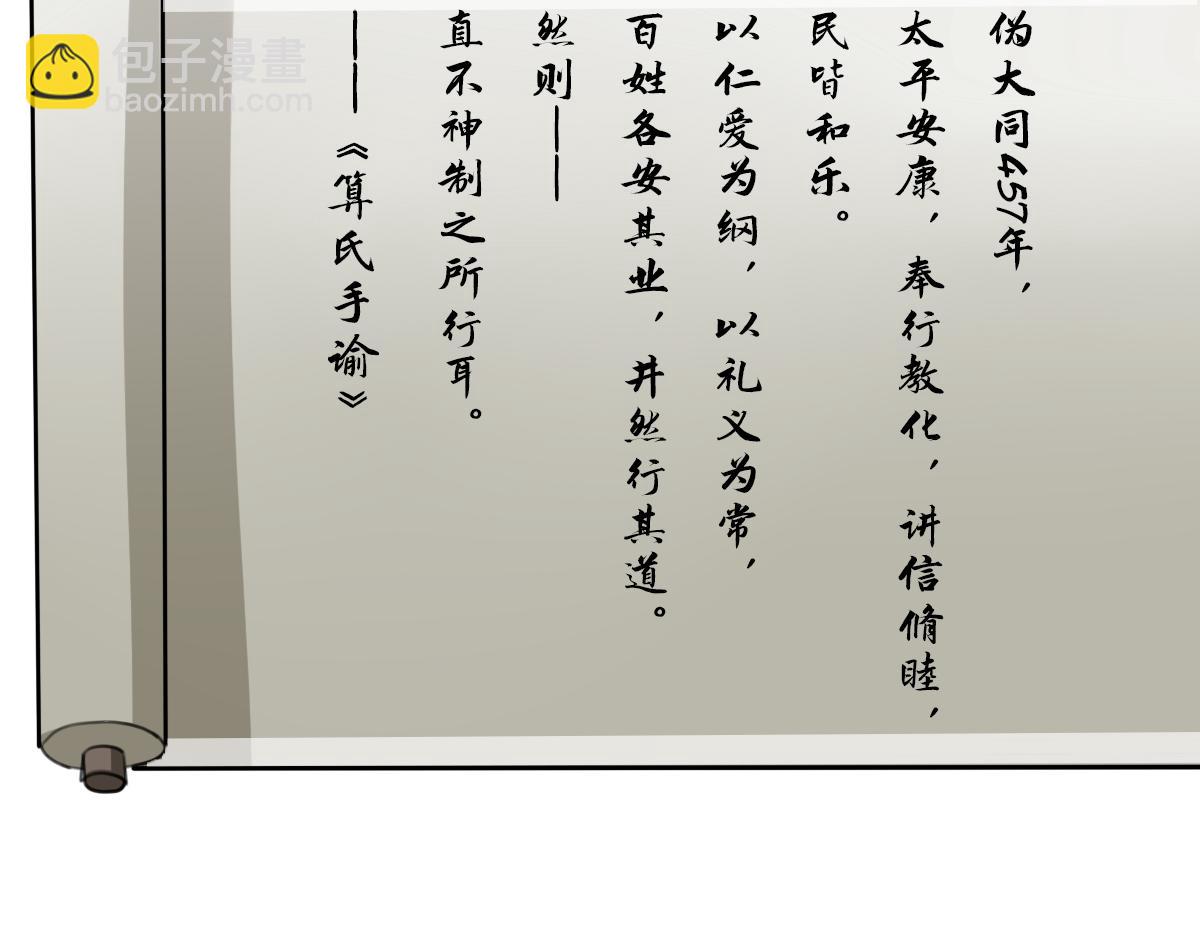 伪大同457年，
太平安康，奉行教化，讲信脩睦，
民皆和乐。
以仁爱为纲，以礼义为常，
百姓各安其业，井然行其道。
然则——
直不神制之所行耳。
——《算氏手谕》
包子漫畫
baozimh.com